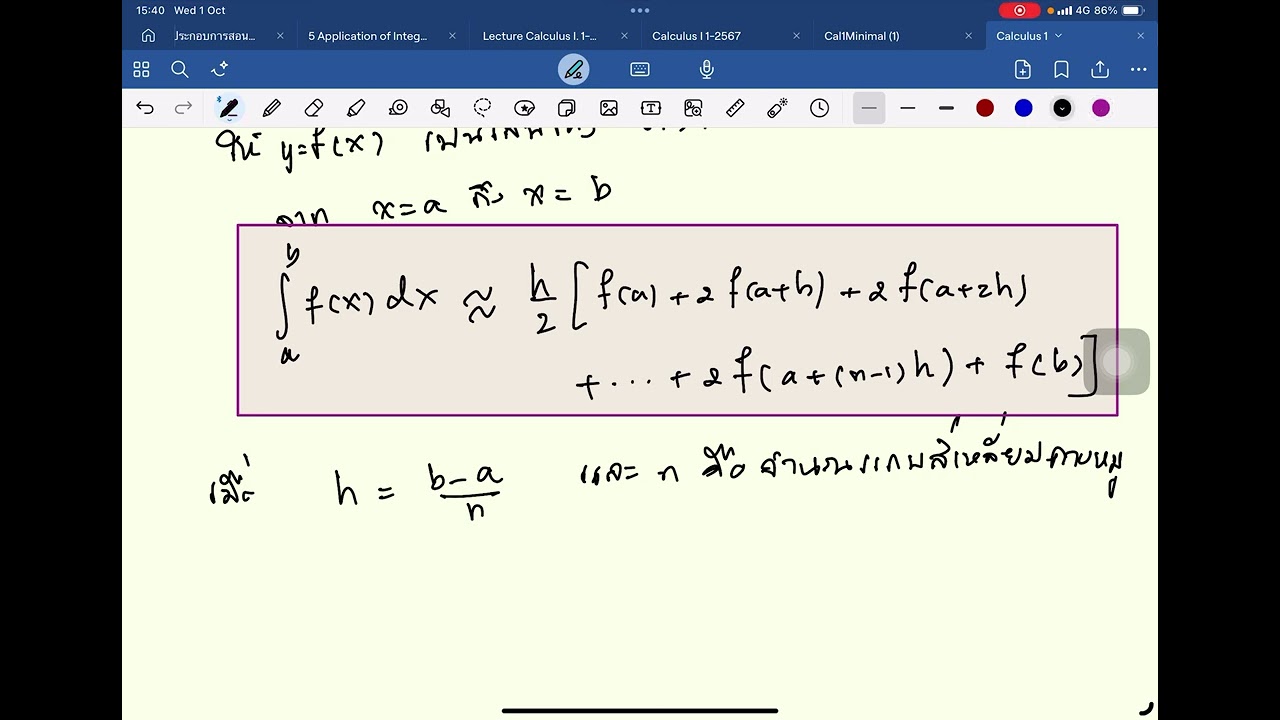 15:40 Wed 1 Oct
4G 86%
ประกอบการสอน...
5 Application of Integ...
Lecture Calculus I. 1-...
Calculus I 1-2567
Cal1Minimal (1)
Calculus 1
ให้ y=f(x) เป็น
จาก x=a ถึง x= b
∫_a^b f(x) dx ≈ h/2 [ f(a) + 2 f(a+h) + 2 f(a+2h)
+ ... + 2 f(a+(n-1)h) + f(b) ]
เมื่อ h = (b-a)/n และ n คือ จำนวนแถบสี่เหลี่ยมคางหมู